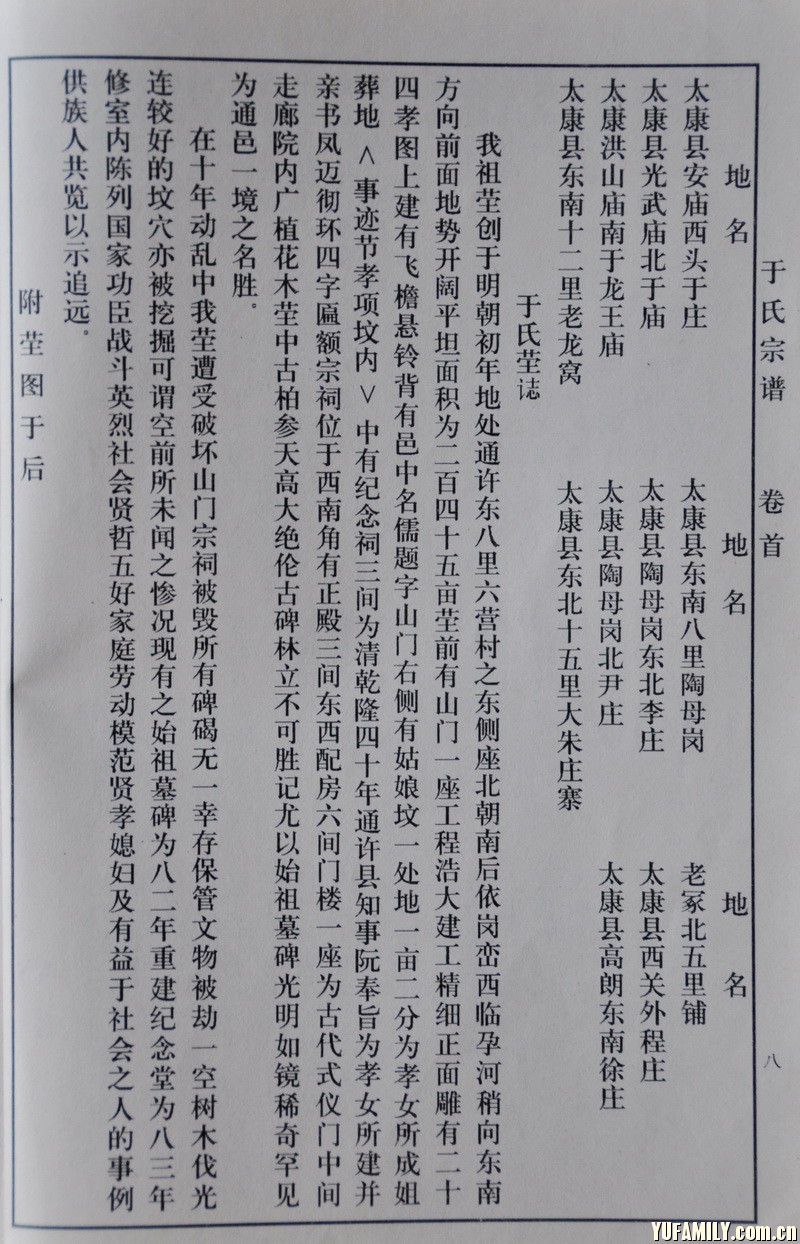 于氏宗谱 卷首 八
地名 地名 地名
太康县安庙西头于庄 太康县东南八里陶母岗 老冢北五里铺
太康县光武庙北于庙 太康县陶母岗东北李庄 太康县西关外程庄
太康洪山庙南于龙王庙 太康县陶母岗北尹庄 太康县高朗东南徐庄
太康县东南十二里老龙窝 太康县东北十五里大朱庄寨
于氏茔誌
我祖茔创于明朝初年地处通许东八里六营村之东侧座北朝南后依岗峦西临孕河稍向东南
方向前面地势开阔平坦面积为二百四十五亩茔前有山门一座工程浩大建工精细正面雕有二十
四孝图上建有飞檐悬铃背有邑中名儒题字山门右侧有姑娘坟一处地一亩二分为孝女所成姐
葬地<事迹节孝项坟内>中有纪念祠三间为清乾隆四十年通许县知事阮奉旨为孝女所建并
亲书凤迈彻环四字匾额宗祠位于西南角有正殿三间东西配房六间门楼一座为古代式仪门中间
走廊院内广植花木茔中古柏参天高大绝伦古碑林立不可胜记尤以始祖墓碑光明如镜稀奇罕见
为通邑一境之名胜。
在十年动乱中我茔遭受破坏山门宗祠被毁所有碑碣无一幸存保管文物被劫一空树木伐光
连较好的坟穴亦被挖掘可谓空前所未闻之惨况现有之始祖墓碑为八二年重建纪念堂为八三年
修室内陈列国家功臣战斗英烈社会贤哲五好家庭劳动模范贤孝媳妇及有益于社会之人的事例
供族人共览以示追远。
附茔图于后
YUFAMILY.com.cn